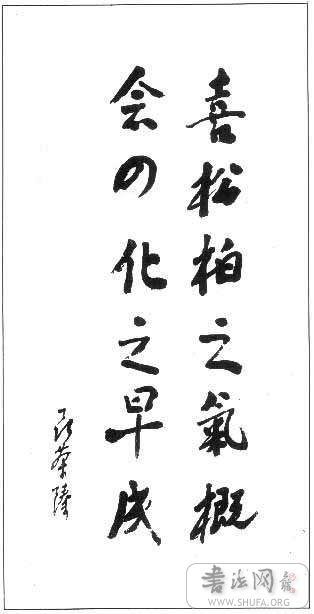 喜松柏之氣概
会四化之早成
聂荣臻
書法网
WWW.SHUFA.ORG